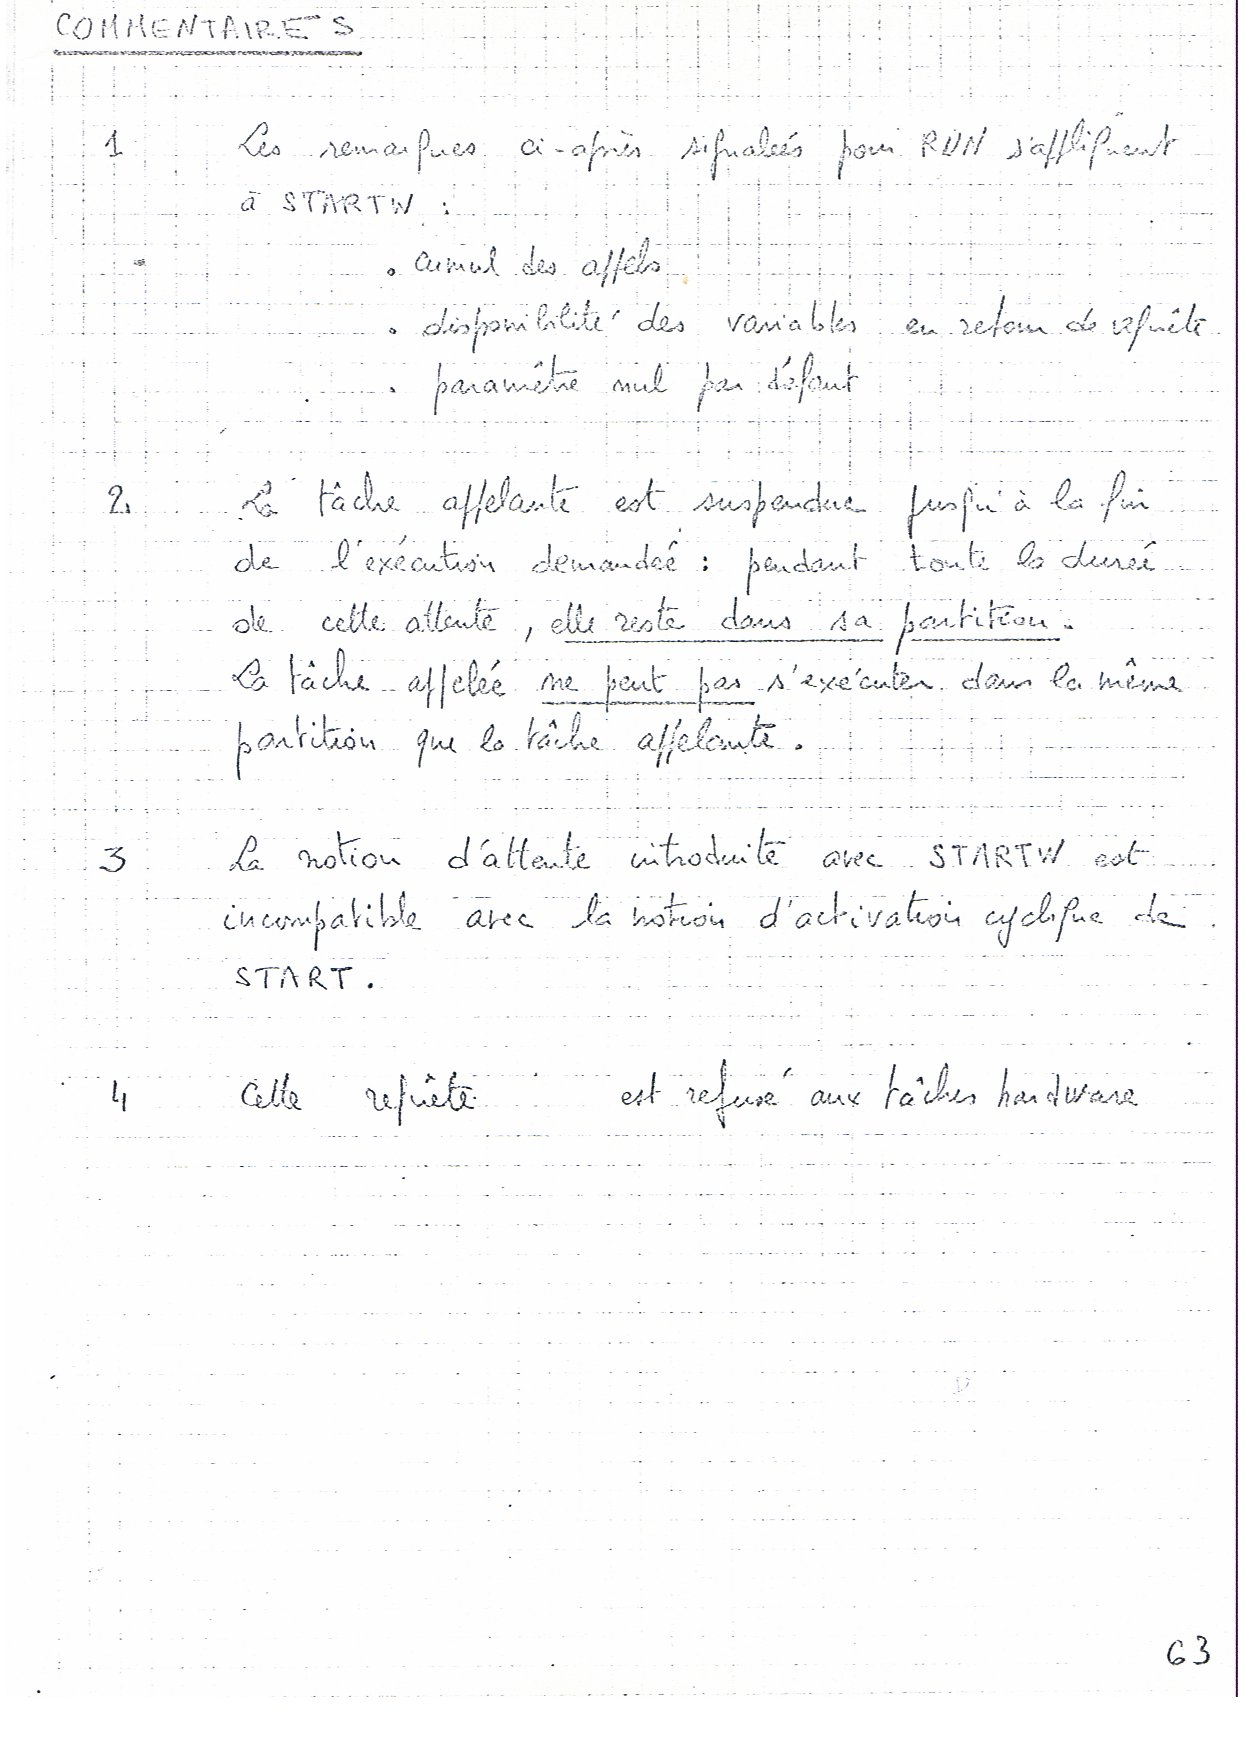 COMMENTAIRES
1 Les remarques ci-après signalées pour RUN s'appliquent
à STARTW :
. cumul des appels
. disponibilité des variables en retour de requête
. paramètre nul par défaut
2. La tâche appelante est suspendue jusqu'à la fin
de l'exécution demandée : pendant toute la durée
de cette attente, elle reste dans sa partition.
La tâche appelée ne peut pas s'exécuter dans la même
partition que la tâche appelante.
3 La notion d'attente introduite avec STARTW est
incompatible avec la notion d'activation cyclique de
START.
4 Cette requête est refusé aux tâches hardware
63